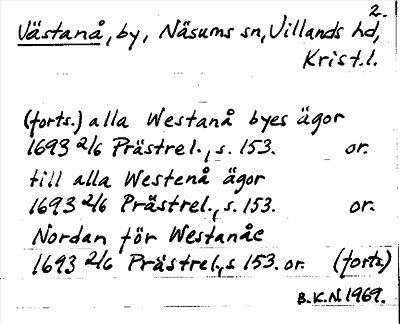 2.
Västanå, by, Näsums sn, Villands hd,
Krist.l.
(forts.) alla Westanå byes ägor
1693 2/6 Prästrel., s. 153. or.
till alla Westenå ägor
1693 2/6 Prästrel., s. 153. or.
Nordan för Westanåe
1693 2/6 Prästrel., s 153. or. (forts)
B.K.N. 1969.